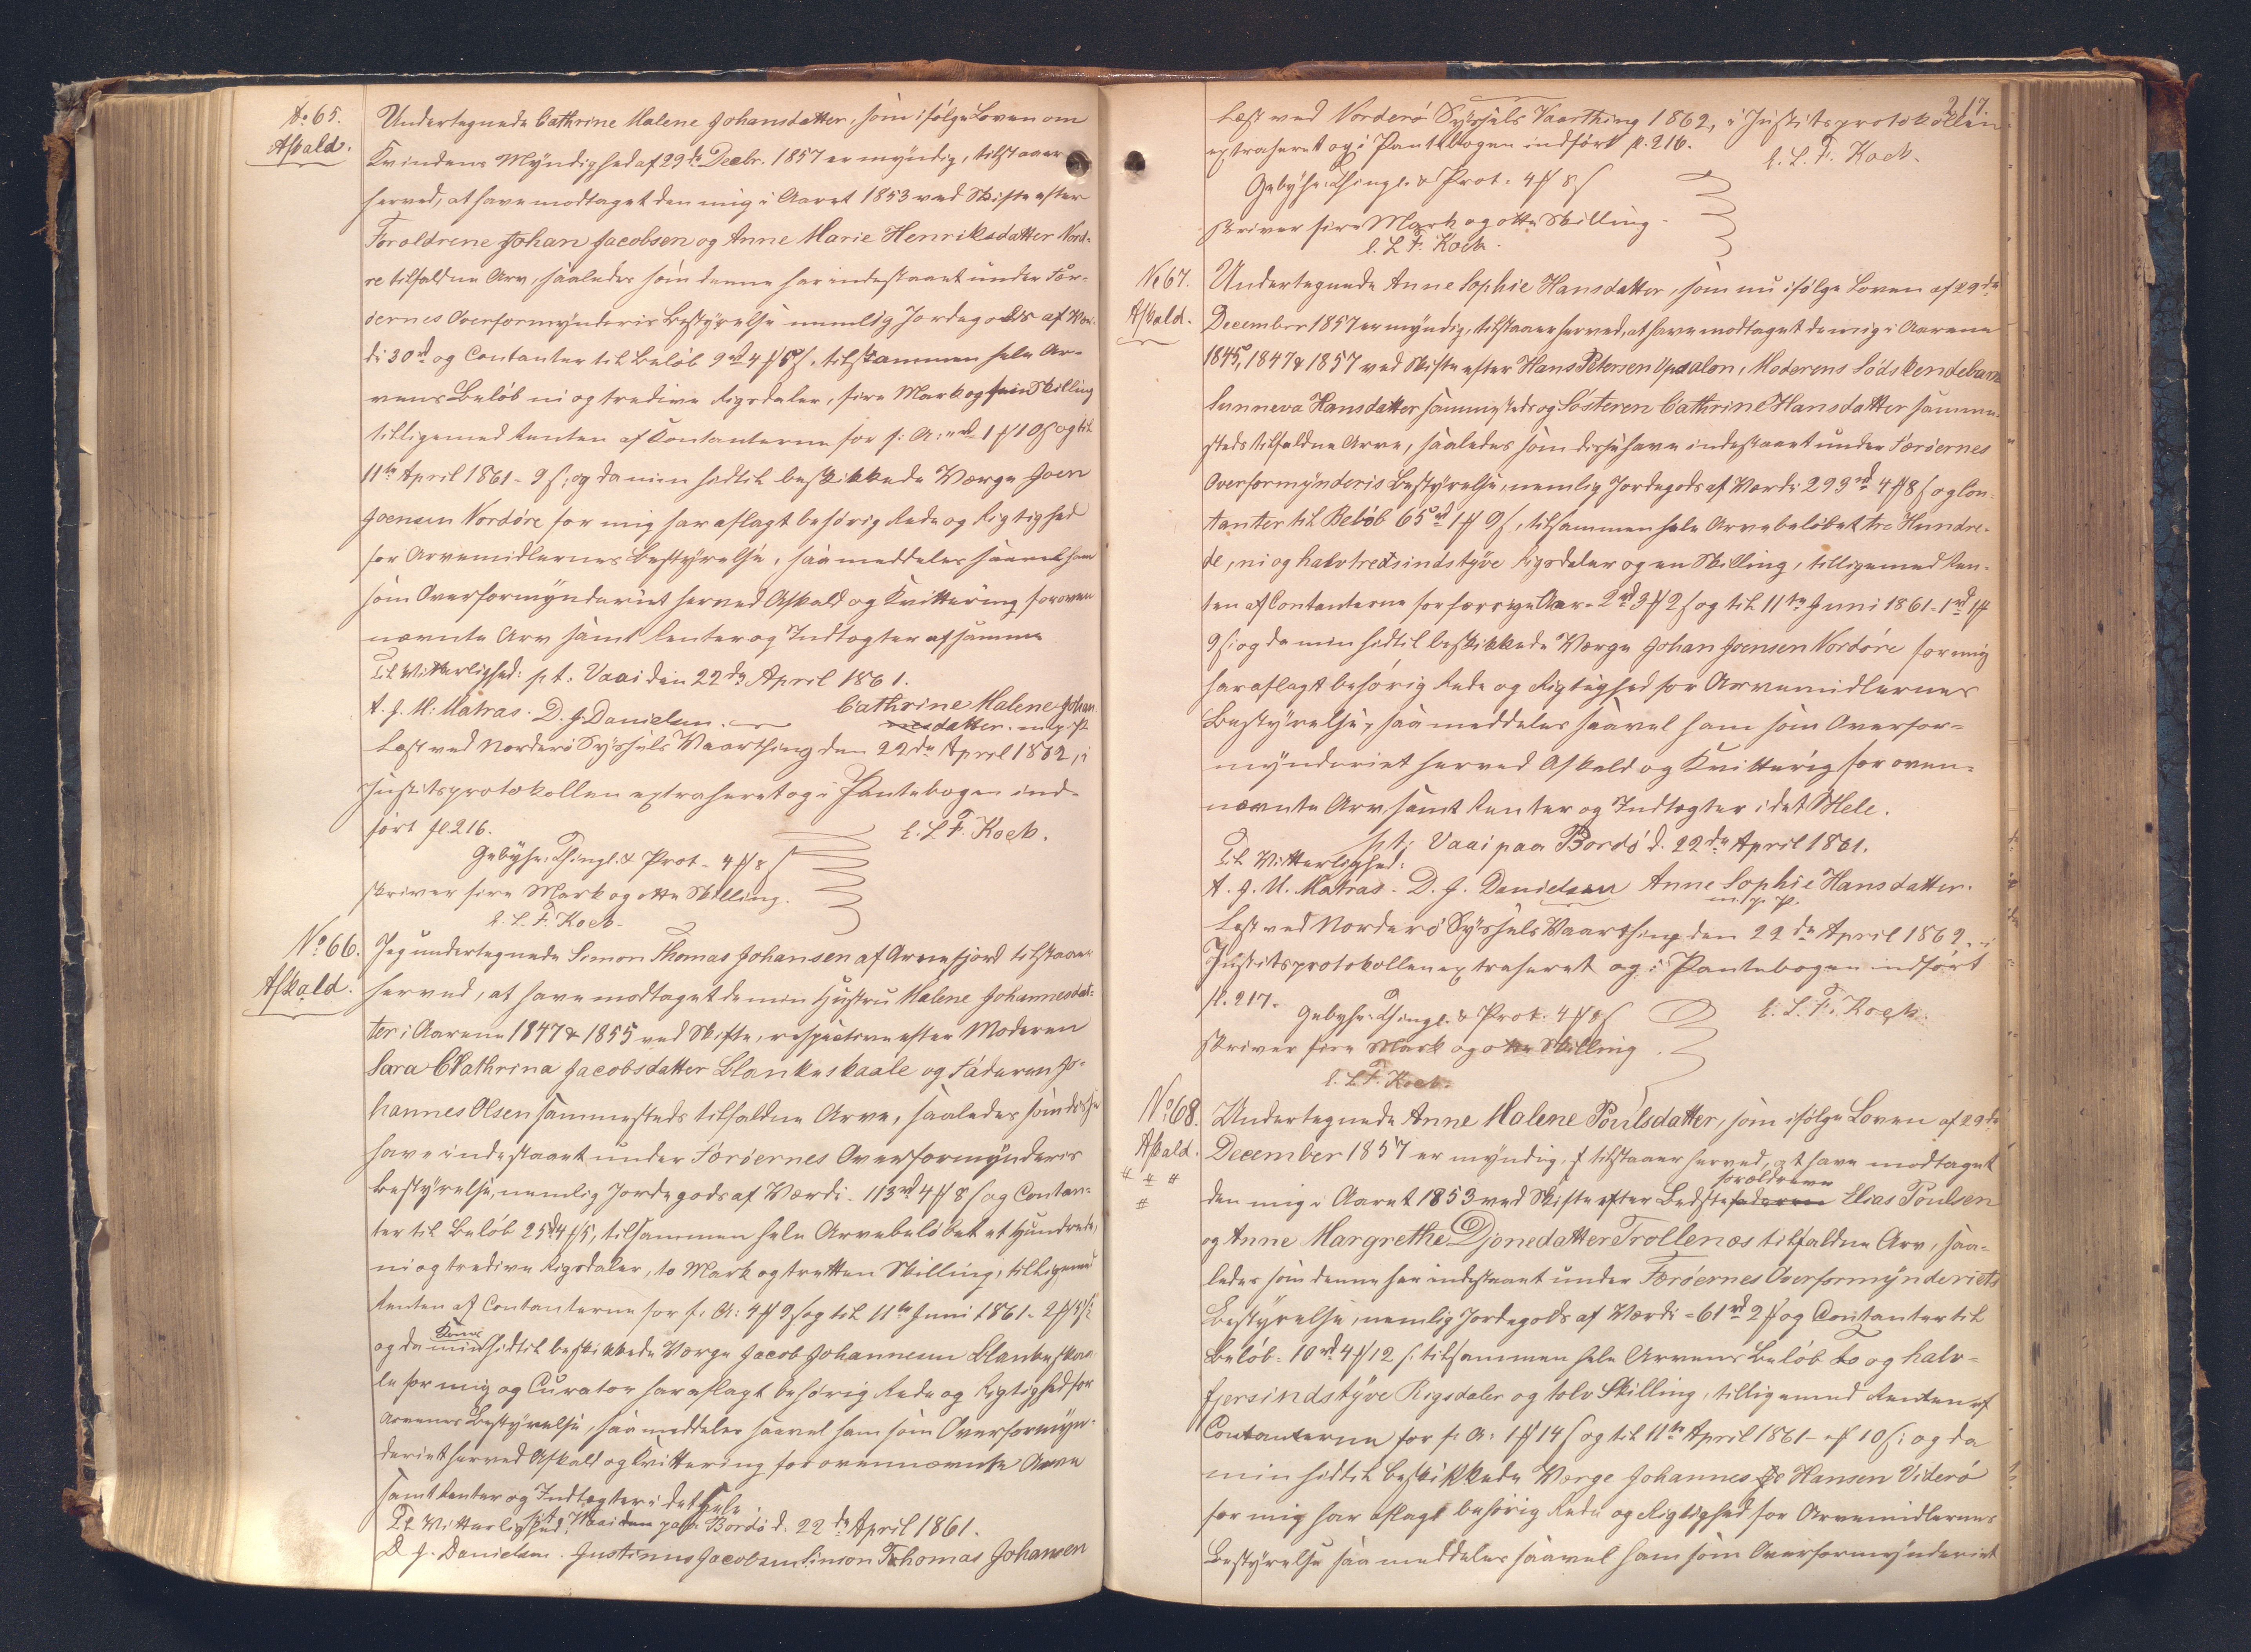 No 65.
Afkald.
Undertegnede Cathrine Malene Johansdatter, som ifølge Loven om
Kvindens Myndighed af 29de Decbr. 1857 er myndig, tilstaaer
herved, at have modtaget den mig i Aaret 1853 ved Skifte efter
Foraldrene Johan Jacobsen og Anne Marie Henriksdatter Nord-
re tilfaldne Arv, saaledes som denne har indestaaet under Fær-
øernes Overformynderis Bestyrelse nemlig Jordegods af Vær-
di 30 rd og Contanter til Beløb 9 rd 4 ß, tilsammen hele Ar-
vens Beløb ni og tredive Rigsdaler, fire Mark og Skilling
tilligemed Renten af Contanterne for f: A: 1 10 ß og til
11te April 1861 - 9 ß; og da min hidtil beskikkede Værge Joen
Joensen Nordøre for mig har aflagt behørig Rede og Rigtighed
for Arvemidlernes Bestyrelse, saa meddeles saavel ham
som Overformynderiet herved Afkald og Kvittering for oven
nævnte Arv samt Renter og Indtægter af samme
Til Vitterlighed: p.t. Vaai den 22de April 1861.
A. J. M. Matras. D. J. Danielsen. Cathrine Malene Johan
nesdatter. m. p. P.
Læst ved Norderø Syssels Vaarthing den 22de April 1862, i
Justitsprotokollen extraheret og i Pantebogen ind-
ført fl. 216. E. L. F. Koch.
Gebyhr: Thingl. & Prot. 4 ß 8 ß
skriver fire Mark og otte Skilling.
E. L. F. Koch.
No 66.
Afkald.
Jeg undertegnede Simon Thomas Johansen af Arnefjord tilstaaer
herved, at have modtaget de min Hustru Malene Johannesdat-
ter i Aarene 1847 & 1855 ved Skifte, respective efter Moderen
Sara Cathrina Jacobsdatter Blankeskaale og Faderen Jo-
hannes Olsen sammesteds tilfaldne Arve, saaledes som disse
have indestaaet under Færøernes Overformynderis
Bestyrelse, nemlig Jordegods af Værdi - 113 rd 4 ß 8 ß og Contan-
ter til Beløb 25 rd 4 ß 5, tilsammen hele Arvebeløbet et Hundrede,
ni og tredive Rigsdaler, to Mark og tretten Skilling, tilligemed
Renten af Contanterne for f. A: 4 ß 9 ß og til 11te Juni 1861 - 2 ß
og da min Kones hidtil beskikkede Værge Jacob Johannesen Blankeskaa-
le for mig og Curator har aflagt behørig Rede og Rigtighed for
Arvenes Bestyrelse, saa meddeles saavel ham som Overformyn-
deriet herved Afkald og Kvittering for ovennævnte Arve
samt Renter og Indtægter i det Hele.
Til Vitterlighed: p.t. Vaai den paa Bordø d. 22de April 1861.
D. J. Danielsen. Justinus Jacobsen Simon Thomas Johansen
217.
Læst ved Norderø Syssels Vaarthing 1862, i Justitsprotokollen
extraheret og i Pantebogen indført fl. 216.
E. L. F. Koch.
Gebyhr: Thingl. & Prot. 4 ß 8 ß
skriver fire Mark og otte Skilling -
E. L. F. Koch.
No 67.
Afkald.
Undertegnede Anne Sophie Hansdatter, som nu ifølge Loven af 29de
December 1857 er myndig, tilstaaer herved, at have modtaget de mig i Aarene
1845, 1847 & 1857 ved Skifte efter Hans Petersen Upsalon, Moderens Sødskendebarn
Sunneva Hansdatter sammesteds og Søsteren Cathrine Hansdatter samme-
steds tilfaldne Arve, saaledes som disse have indestaaet under Færøernes
Overformynderis Bestyrelse, nemlig Jordegods af Værdi 293 rd 4 ß 8 ß og Con-
tanter til Beløb 65 rd 1 ß 9 ß, tilsammen hele Arvebeløbet tre Hundre-
de, ni og halvtredsindstyve Rigsdaler og en Skilling, tilligemed Ren-
ten af Contanterne for forrige Aar - 2 rd 3 ß 2 ß og til 11te Juni 1861 - 1 rd 1 ß
9 ß; og da min hidtil beskikkede Værge Johan Joensen Nordøre for mig
har aflagt behørig Rede og Rigtighed for Arvemidlernes
Bestyrelse, saa meddeles saavel ham som Overfor-
mynderiet herved Afkald og Kvittering for oven-
nævnte Arv samt Renter og Indtægter i det Hele.
p.t. Vaai paa Bordø d. 22de April 1861.
Til Vitterlighed:
A. J. M. Matras - D. J. Danielsen Anne Sophie Hansdatter.
m. p. P.
Læst ved Norderø Syssels Vaarthing den 22de April 1862, i
Justitsprotokollen extraheret og i Pantebogen indført
fl. 217. E. L. F. Koch.
Gebyhr: Thingl. & Prot. 4 ß 8 ß
skriver fire Mark og otte Skilling.
E. L. F. Koch.
No 68.
Afkald.
Undertegnede Anne Malene Poulsdatter, som ifølge Loven af 29de
December 1857 er myndig, tilstaaer herved, at have modtaget
den mig i Aaret 1853 ved Skifte efter Bedstefaderen forældrene Elias Poulsen
og Anne Margrethe Djonedatter Trollenæs tilfaldne Arv, saa-
ledes som denne har indestaaet under Færøernes Overformynderiets
Bestyrelse, nemlig Jordegods af Værdi - 61 rd 2 ß og Contanter til
Beløb - 10 rd 4 ß 12 ß tilsammen hele Arvens Beløb To og halv-
fjersindstyve Rigsdaler og tolv Skilling, tilligemed Renten af
Contanterne for f. A: 1 ß 14 ß og til 11te April 1861 - ß 10 ß; og da
min hidtil beskikkede Værge Johannes Hansen Viderø
for mig har aflagt behørig Rede og Rigtighed for Arvemidlernes
Bestyrelse saa meddeles saavel ham som Overformynderiet